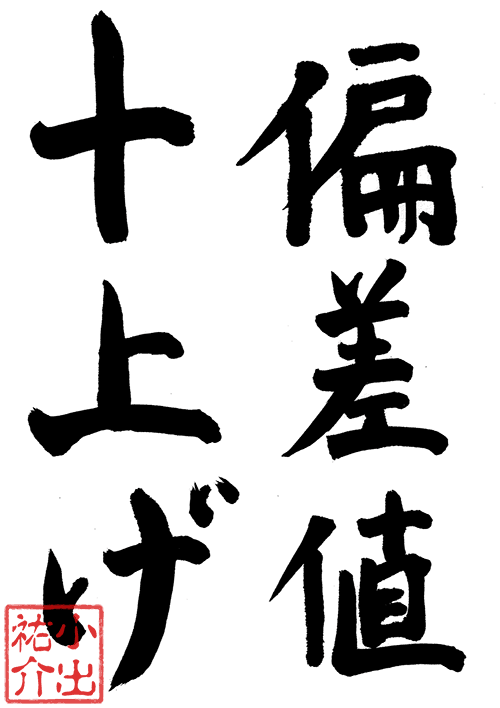 偏差値
十上げ
小出
祐介